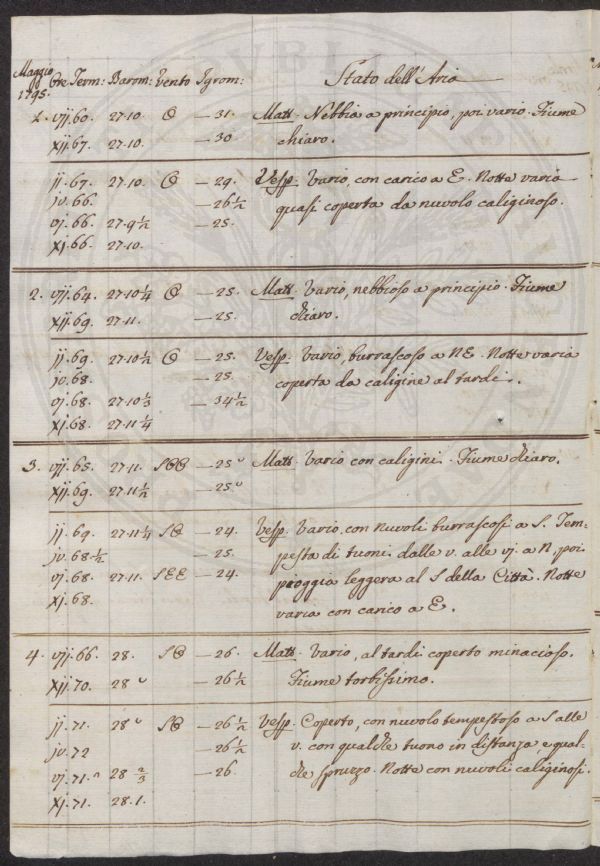 Maggio
1795. Ore Term: Barom: Vento Igrom: Stato dell'Aria
1. vij. 60. 27.10 O — 31. Matt. Nebbia a principio, poi vario. Fiume
xij. 67. 27.10. — 30 chiaro.
ij. 67. 27.10 O — 29. Vesp. Vario, con carico a E. Notte varia
iv. 66. — 26 1/2 quasi coperta da nuvolo caliginoso.
vj. 66. 27.9 1/2 — 25.
xj. 66. 27.10.
2. vij. 64. 27.10 1/4 O — 25. Matt. Vario, nebbioso a principio. Fiume
xij. 69. 27.11. — 25. chiaro.
ij. 69. 27.10 1/2 O — 25. Vesp. Vario, burrascoso a NE. Notte varia
iv. 68. — 25. coperta da caligine al tardi.
vj. 68. 27.10 1/3 — 34 1/2
xj. 68. 27.11 1/4
3. vij. 65. 27.11. SOO — 25 " Matt. Vario con caligini. Fiume chiaro.
xij. 69. 27.11 1/2 — 25 "
ij. 69. 27.11 1/4 SO — 24. Vesp. Vario, con nuvoli burrascosi a S. Tem-
iv. 68 1/2 — 25. pesta di tuoni dalle v. alle vj. a N, poi
vj. 68. 27.11. SEE — 24. pioggia leggera al S della Città. Notte
xj. 68. varia con carico a E.
4. vij. 66. 28. SO — 26. Matt. Vario, al tardi coperto minacioso.
xij. 70. 28 " — 26 1/2 Fiume torbissimo.
ij. 71. 28 " SO — 26 1/2 Vesp. Coperto, con nuvolo tempestoso a S alle
iv. 72 — 26 1/2 v. con qualche tuono in distanza, e qual-
vj. 71. " 28 2/3 — 26. che spruzzo. Notte con nuvoli caliginosi.
xj. 71. 28.1.